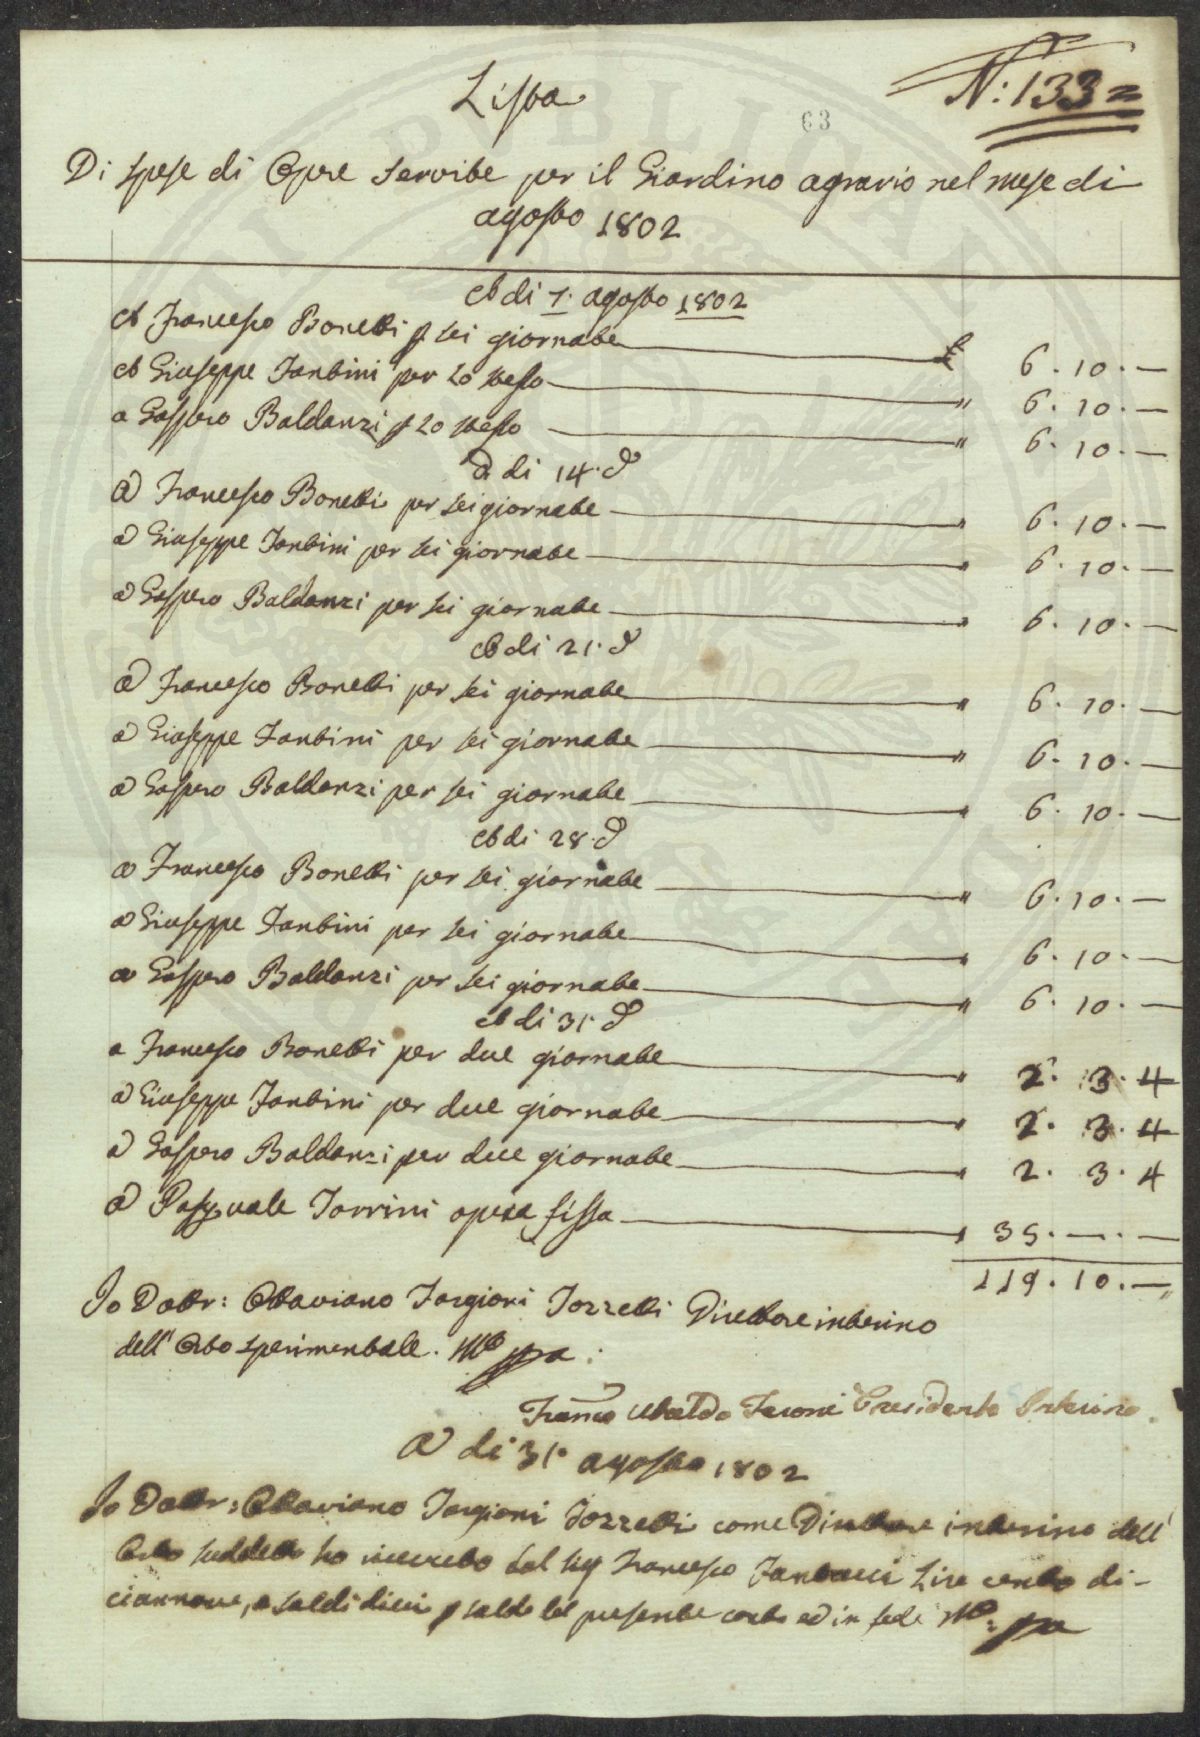 N: 133
63
Lista
Di spese di Opere servite per il Giardino agrario nel mese di
agosto 1802
A di 7. agosto 1802
A Francesco Bonetti p sei giornate £ 6. 10. —
A Giuseppe Fantini per lo stesso " 6. 10. —
a Gaspero Baldanzi p lo stesso " 6. 10. —
A di 14. d
A Francesco Bonetti per sei giornate " 6. 10. —
a Giuseppe Fantini per sei giornate " 6. 10. —
a Gaspero Baldanzi per sei giornate " 6. 10. —
A di 21. d
A Francesco Bonetti per sei giornate " 6. 10. —
a Giuseppe Fantini per sei giornate " 6. 10. —
a Gaspero Baldanzi per sei giornate " 6. 10. —
A di 28. d
a Francesco Bonetti per sei giornate " 6. 10. —
a Giuseppe Fantini per sei giornate " 6. 10. —
a Gaspero Baldanzi per sei giornate " 6. 10. —
A di 31. d
a Francesco Bonetti per due giornate " 2. 3. 4
a Giuseppe Fantini per due giornate " 2. 3. 4
a Gaspero Baldanzi per due giornate " 2. 3. 4
A Pasquale Torrini opera fissa " 35. — . —
119. 10. —
Io Dottr: Ottaviano Targioni Tozzetti Direttore interino
dell' Orto sperimentale. Mo ppa
Franco Ubaldo Feroni Presidente Interino.
A di 31. agosto 1802
Io Dottr: Ottaviano Targioni Tozzetti come Direttore interino dell'
Orto suddetto ho ricevuto dal Sig Francesco Lire cento di-
ciannove, e soldi dieci p saldo del presente conto ed in fede Mo: ppa